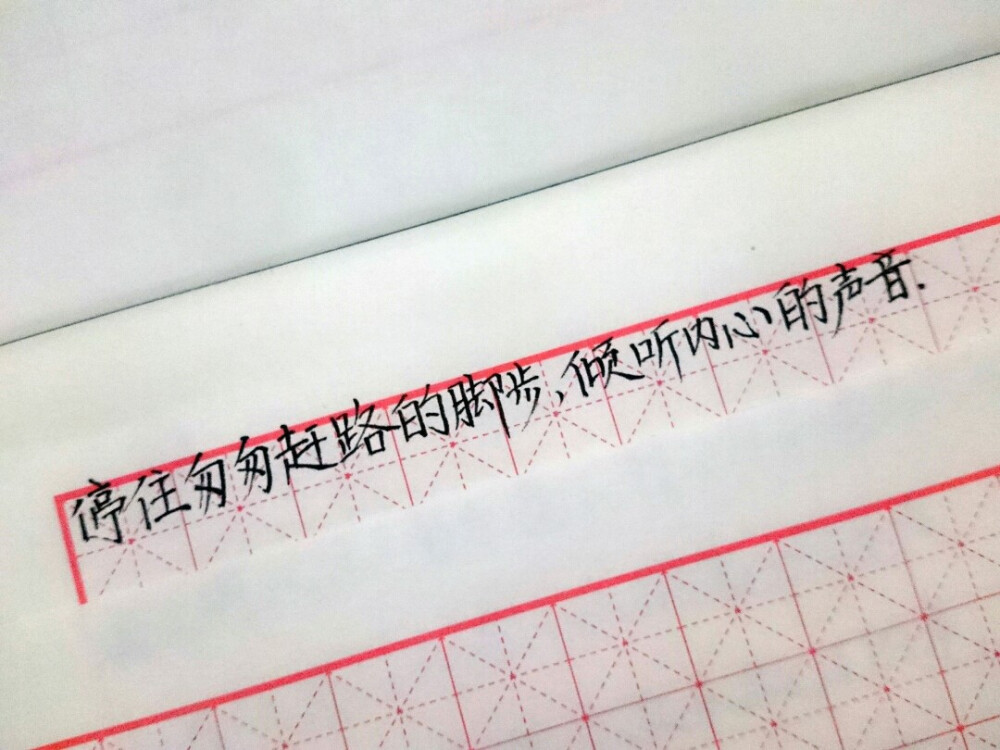 停住匆匆赶路的脚步,倾听内心的声音.